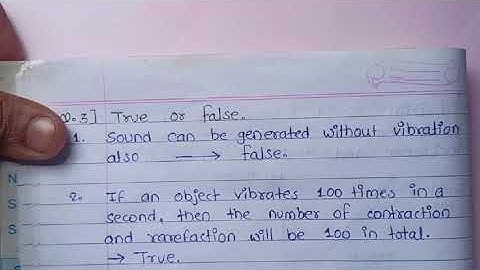 0.3] True or false.
1. Sound can be generated without vibration
also → false.
2. If an object vibrates 100 times in a
second, then the number of contraction
and rarefaction will be 100 in total.
→ True.
N
S
S
S